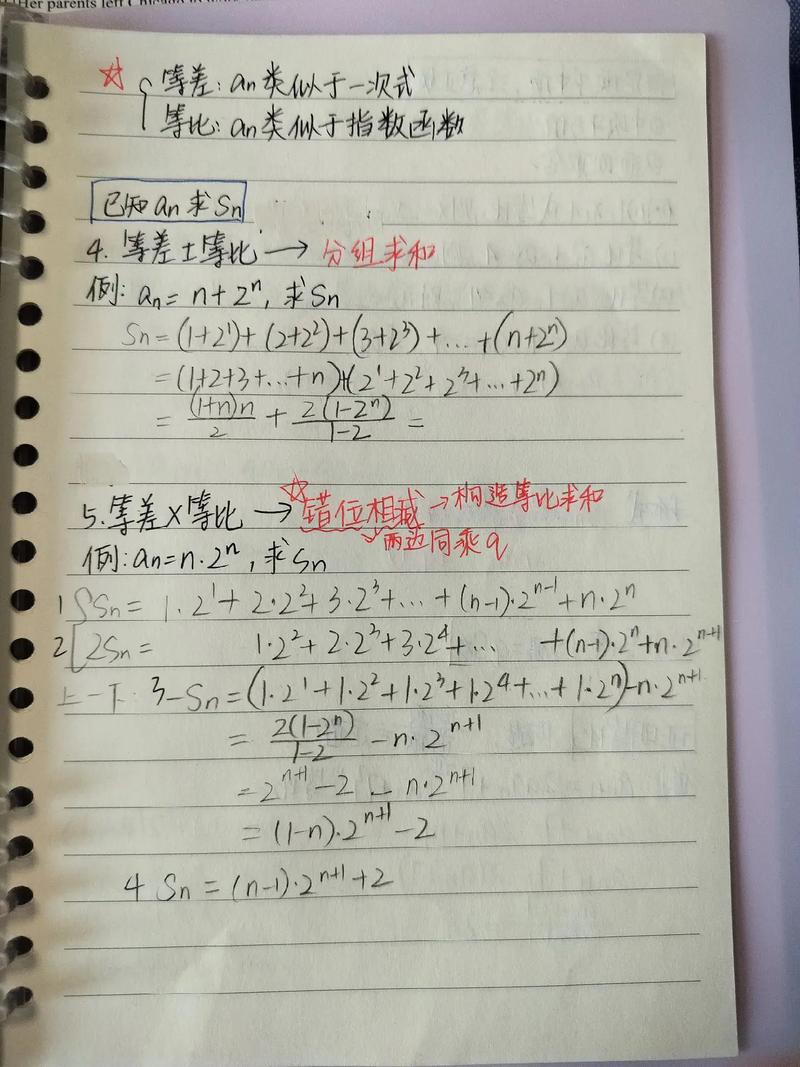 Her parents left Chicago
☆ { 等差: an类似于一次式
等比: an类似于指数函数
已知an求Sn
4. 等差±等比 → 分组求和
例: an = n + 2^n, 求Sn
Sn = (1+2^1) + (2+2^2) + (3+2^3) + ... + (n+2^n)
= (1+2+3+...+n) + (2^1+2^2+2^3+...+2^n)
= (1+n)n/2 + 2(1-2^n)/1-2 =
5. 等差×等比 → ☆错位相减 → 构造等比求和
两边同乘q
例: an = n·2^n, 求Sn
1 { Sn = 1·2^1 + 2·2^2 + 3·2^3 + ... + (n-1)·2^(n-1) + n·2^n
2 2Sn = 1·2^2 + 2·2^3 + 3·2^4 + ... + (n-1)·2^n + n·2^(n+1)
上-下: 3 -Sn = (1·2^1 + 1·2^2 + 1·2^3 + 1·2^4 + ... + 1·2^n) - n·2^(n+1)
= 2(1-2^n)/1-2 - n·2^(n+1)
= 2^(n+1) - 2 - n·2^(n+1)
= (1-n)·2^(n+1) - 2
4 Sn = (n-1)·2^(n+1) + 2